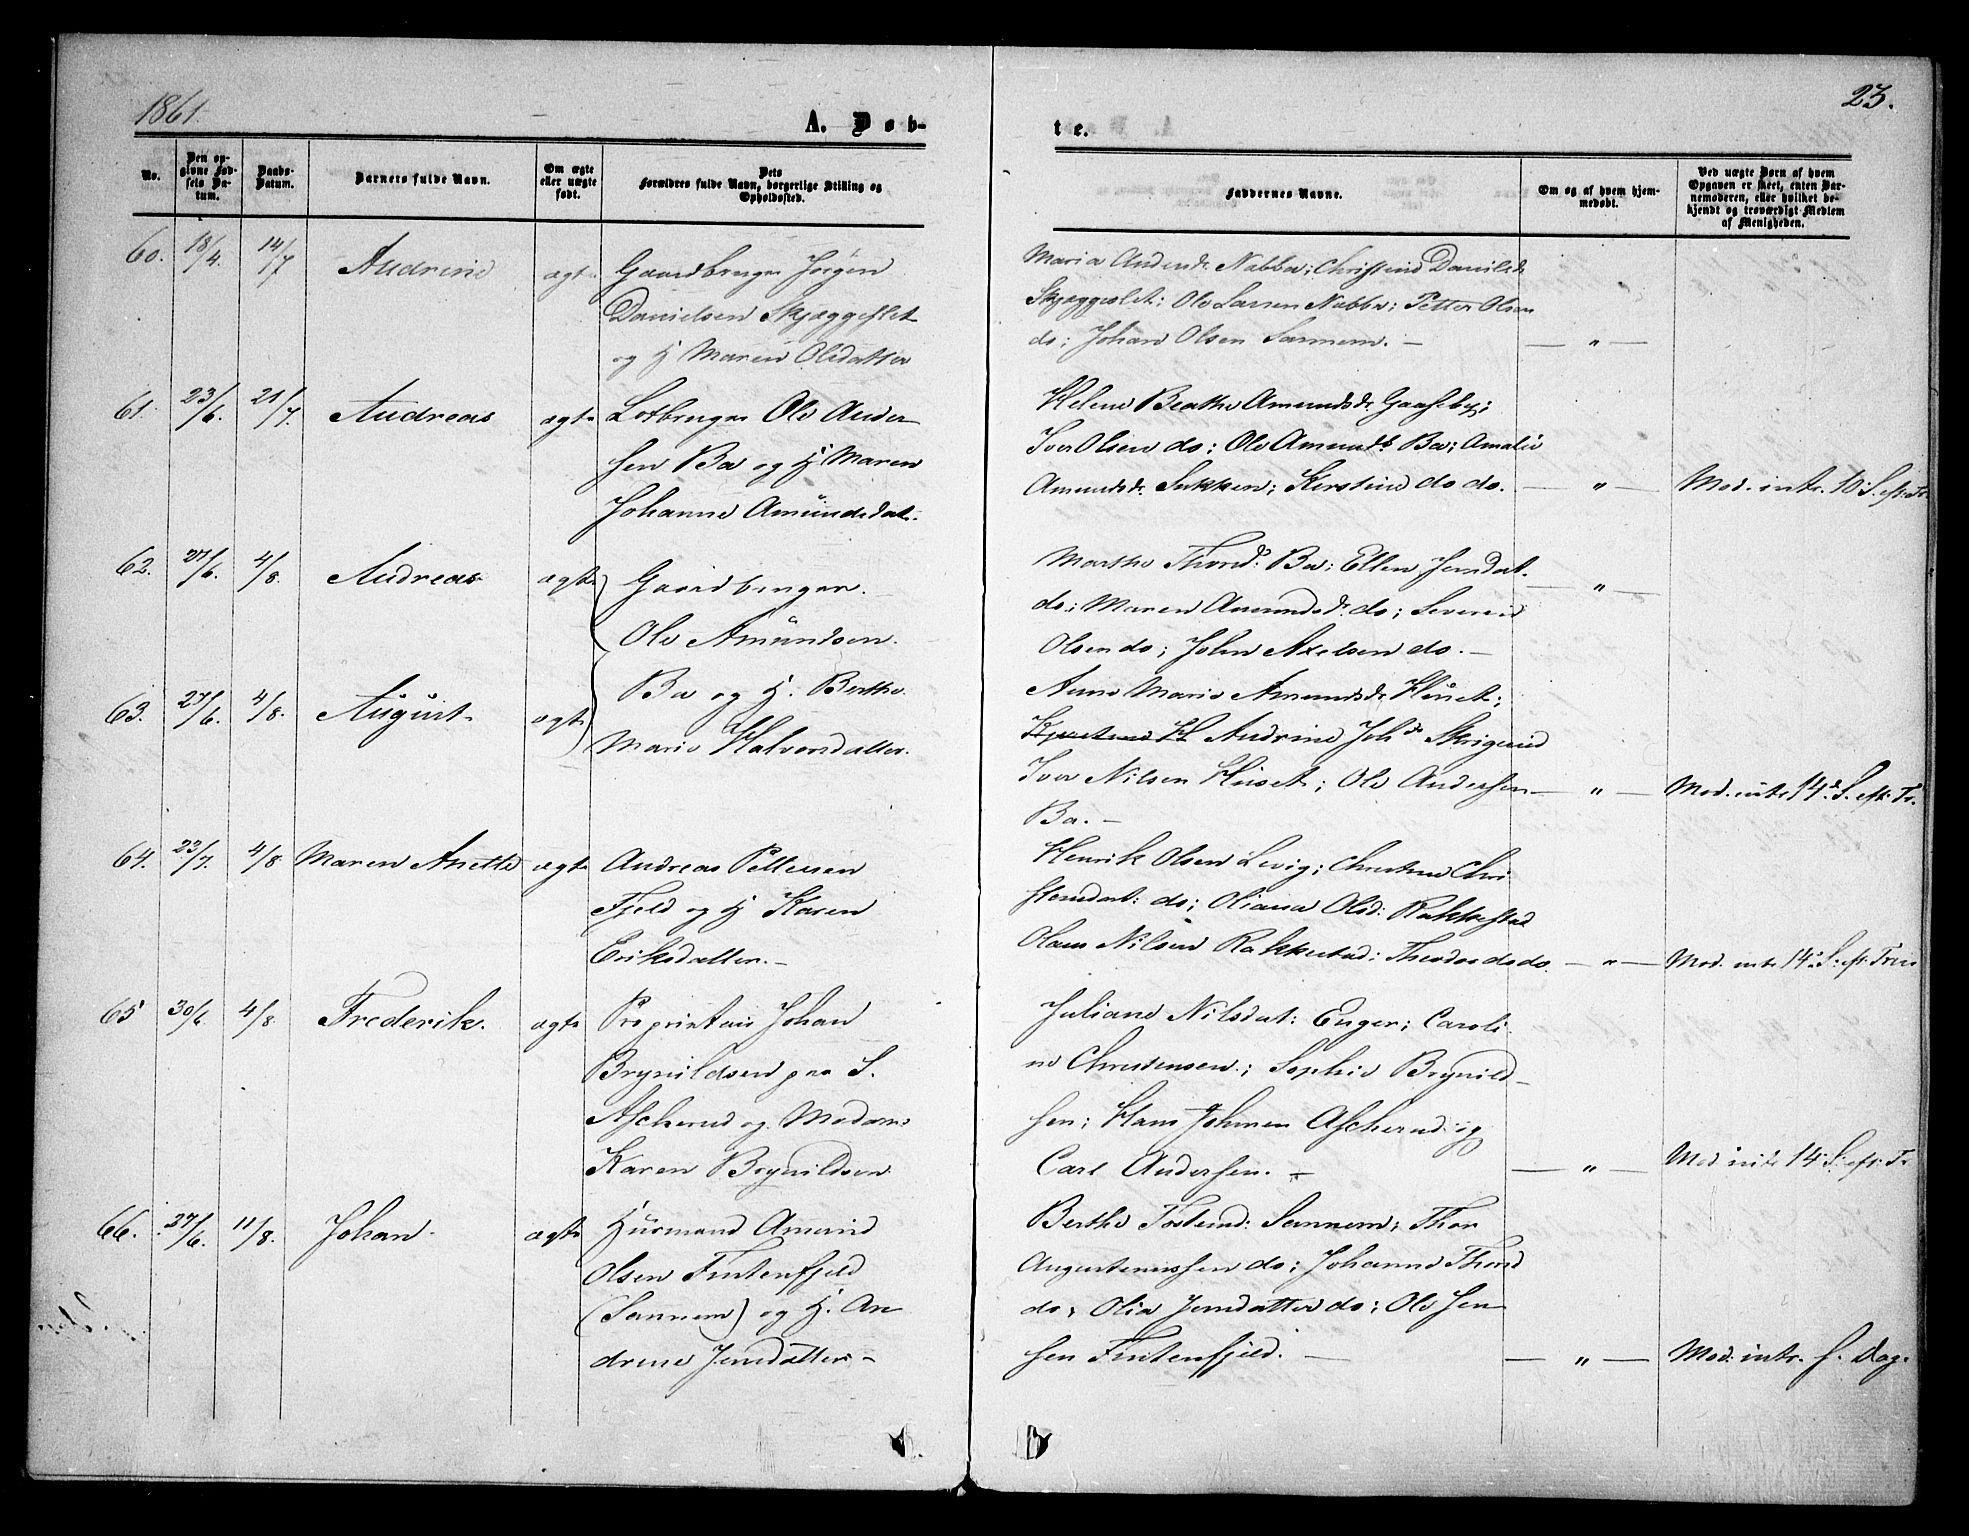 1861.
A. Døb-
te.
23.
No.
Den op-
givne Fød-
sels Da-
tum.
Daabs-
Datum.
Barnets fulde Navn.
Om ægte
eller uægte
født.
Dets
Forældres fulde Navn, borgerlige Stilling og
Opholdssted.
Faddernes Navne.
Om og af hvem hjem-
medøbt.
Ved uægte Børn af hvem
Opgaven er skeet, enten Bar-
nemoderen, eller hvilket be-
kjendt og troværdigt Medlem
af Menigheden.
60. 18/4. 14/7 Andrine ægte Gaardbruger Jørgen
Danielsen Skjæggeslet
og H Maren Olsdatter
Maria Andersd. Nabba; Christine Danielsd.
Skjæggeslet; Ole Larsen Nabba; Petter Olsen
do; Johan Olsen Sannem. —
— " —
61. 23/6. 21/7. Andreas ægte Lotbruger Ole Ander
sen Ba og H Maren
Johanne Amundsdat.
Helene Beathe Amundsd. Gaaseby;
Iver Olsen do; Ole Amunds. Ba; Amalie
Amundsd. Sukken; Kirstine do do.
— " — Mod. intr. 10. S. eft. Tr.
62. 27/6. 4/8. Andreas ægte Gaardbruger
Ole Amundsen
Ba og H. Berthe
Marie Halvorsdatter.
Marthe Thord. Ba; Ellen Jensdat.
do; Maren Amundsd. do; Severin
Olsen do; John Axelsen do. —
— " —
63. 27/6. 4/8. August. ægte
Anne Marie Amundsd. Huset;
Andrine Joh.d.
Iver Nilsen Huset; Ole Andersen
Ba. —
— " — Mod. intr 14. S. eft. Tr.
64. 23/7. 4/8 Maren Anette ægte Andreas Pettersen
Fjeld og H Karen
Eriksdatter. —
Henrik Olsen Levig; Christine Chri
stensdat: do; Oliana Olsd: Rakkestad
Hans Nilsen Rakkestad; do.
— " — Mod. intr 14. S. eft. Trin
65 30/6. 4/8. Frederik. ægte Proprietair Johan
Brynildsen paa S.
Askerud og Madam
Karen Brynildsen
Juliane Nilsdat: Enger; Caroli
ne Christensen; Sophie Brynild-
sen; Hans Johnsen Askerud og
Carl Andersen. —
— " — Mod intr 14 S. eft. Tr
66. 27/6. 11/8. Johan. ægte Huusmand Amund
Olsen Fintenfjeld
(Sannem) og H. An
drine Jensdatter —
Berthe Sannem; Thor
Augustinussen do; Johanne Thord
do; Olia Jensdatter do; Ole Jen
sen Fintenfjeld. —
— " — Mod. intr. s. Dag.